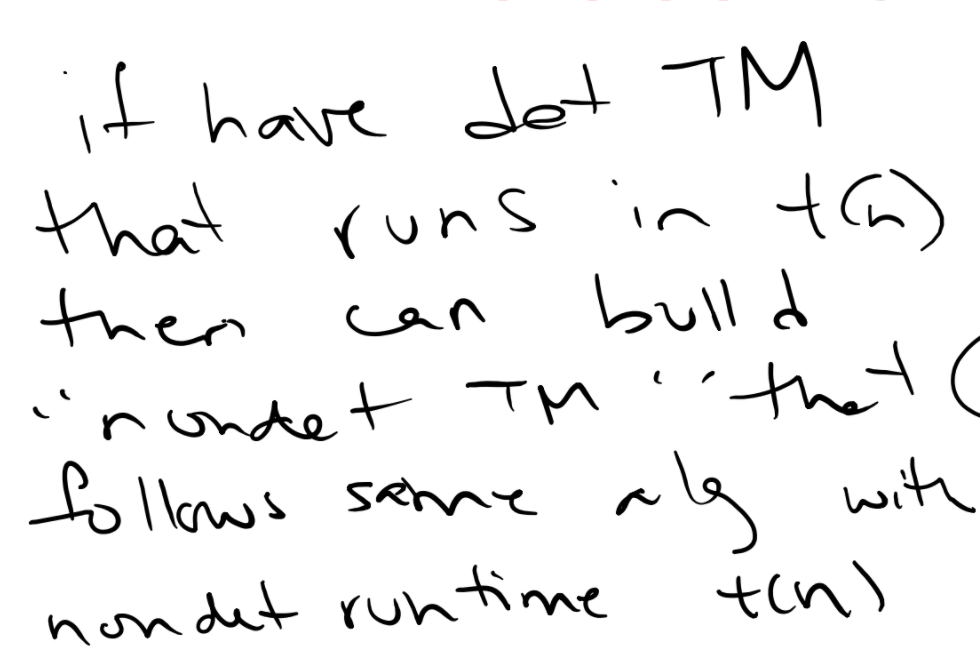 if have det TM
that runs in t(n)
then can build
"nondet TM" that (
follows same alg with
nondet runtime t(n)